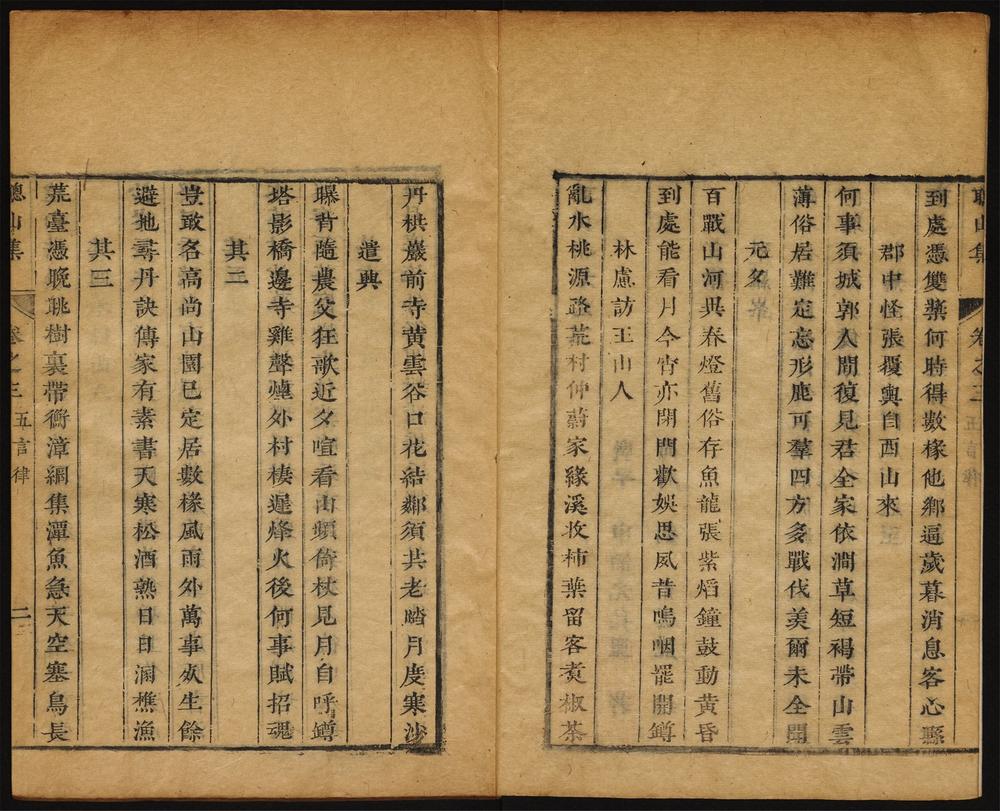 聰山集 卷之三 五言律
到處憑雙槳何時得數椽他鄉逼歲暮消息客心縣
郡中怪張覆輿自西山來
何事須城郭人間復見君全家依澗草短褐帶山雲
薄俗居難定忘形鹿可羣四方多戰伐羡爾未全聞
元夕
百戰山河異春燈舊俗存魚龍張紫熖鐘鼓動黃昏
到處能看月今宵亦閉門歡娛思夙昔嗚咽罷開罇
林慮訪王山人
亂水桃源路荒村仲蔚家緣溪收柿葉留客煮椒茶
丹栱巖前寺黃雲谷口花結鄰須共老踏月度寒沙
遣興
曝背隨農父狂歌近夕喧看山頻倚杖見月自呼罇
塔影橋邊寺雞聲煙外村棲遲烽火後何事賦招魂
其二
豈敢名高尚山園已定居數椽風雨外萬事灰生餘
避地尋丹訣傳家有素書天寒松酒熟日日溷樵漁
其三
荒臺憑晚眺樹裏帶衡漳網集潭魚急天空塞鳥長
聰山集 卷之三 五言律 二